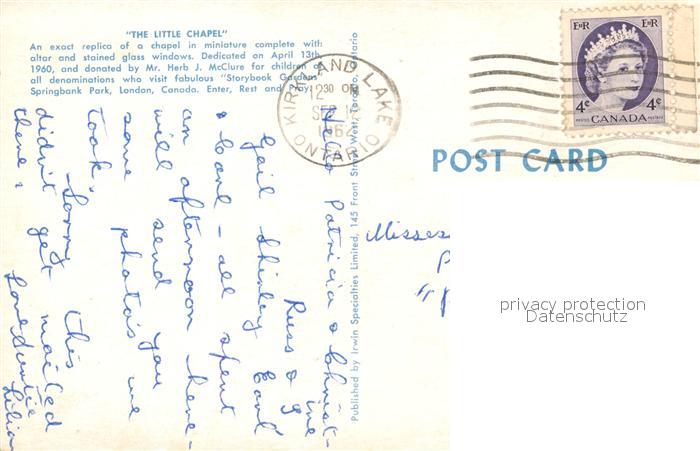 "THE LITTLE CHAPEL"
An exact replica of a chapel in miniature complete with
altar and stained glass windows. Dedicated on April 13th,
1960, and donated by Mr. Herb J. McClure for children of
all denominations who visit fabulous "Storybook Gardens"
Springbank Park, London, Canada. Enter, Rest and
KIRKLAND LAKE
12 30
1962
ONTARIO
E II R E II R
4¢ 4¢
POSTES CANADA POSTAGE
POST CARD
Published by Irwin Specialties Limited, 145 Front Street West, Toronto, Ontario
Hello Patricia & Christ-
ine
Russ & I
Gail Shirley Earl
& Carl - all spent
an afternoon here -
will send you
some photo's we
took.
Sorry this
didn't get mailed
there.
Love Auntie
Lilian
Misses
privacy protection
Datenschutz